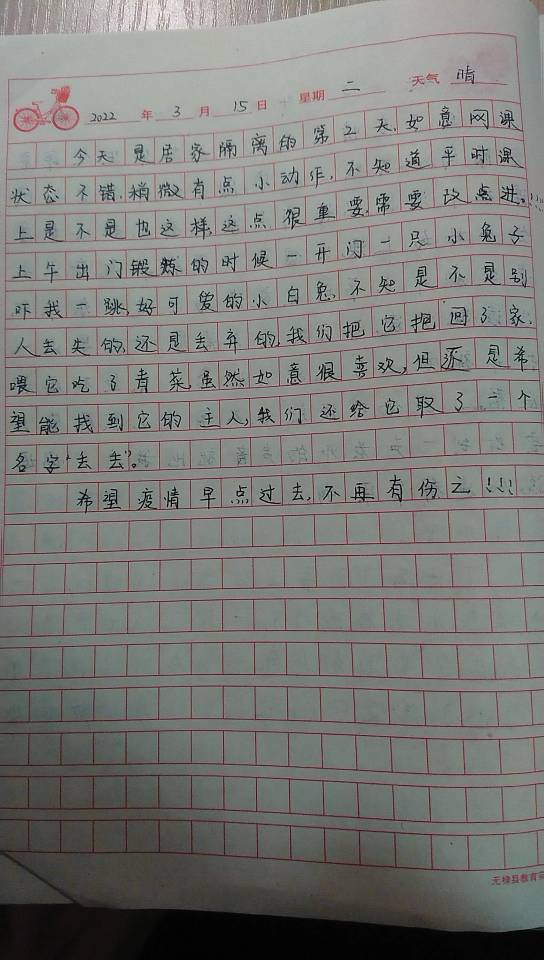 2022 年 3 月 15 日 星期 二 天气 晴
今天是居家隔离的第2天,如意网课
状态不错,稍微有点小动作,不知道平时课
上是不是也这样,这点很重要,需要改点进。!!!
上午出门锻炼的时候一开门一只小兔子
吓我一跳,好可爱的小白兔,不知是不是别
人丢失的,还是丢弃的,我们把它抱回了家,
喂它吃了青菜,虽然如意很喜欢,但还是希
望能找到它的主人,我们还给它取了一个
名字“去去”。
希望疫情早点过去,不再有伤亡!!!
无棣县教育